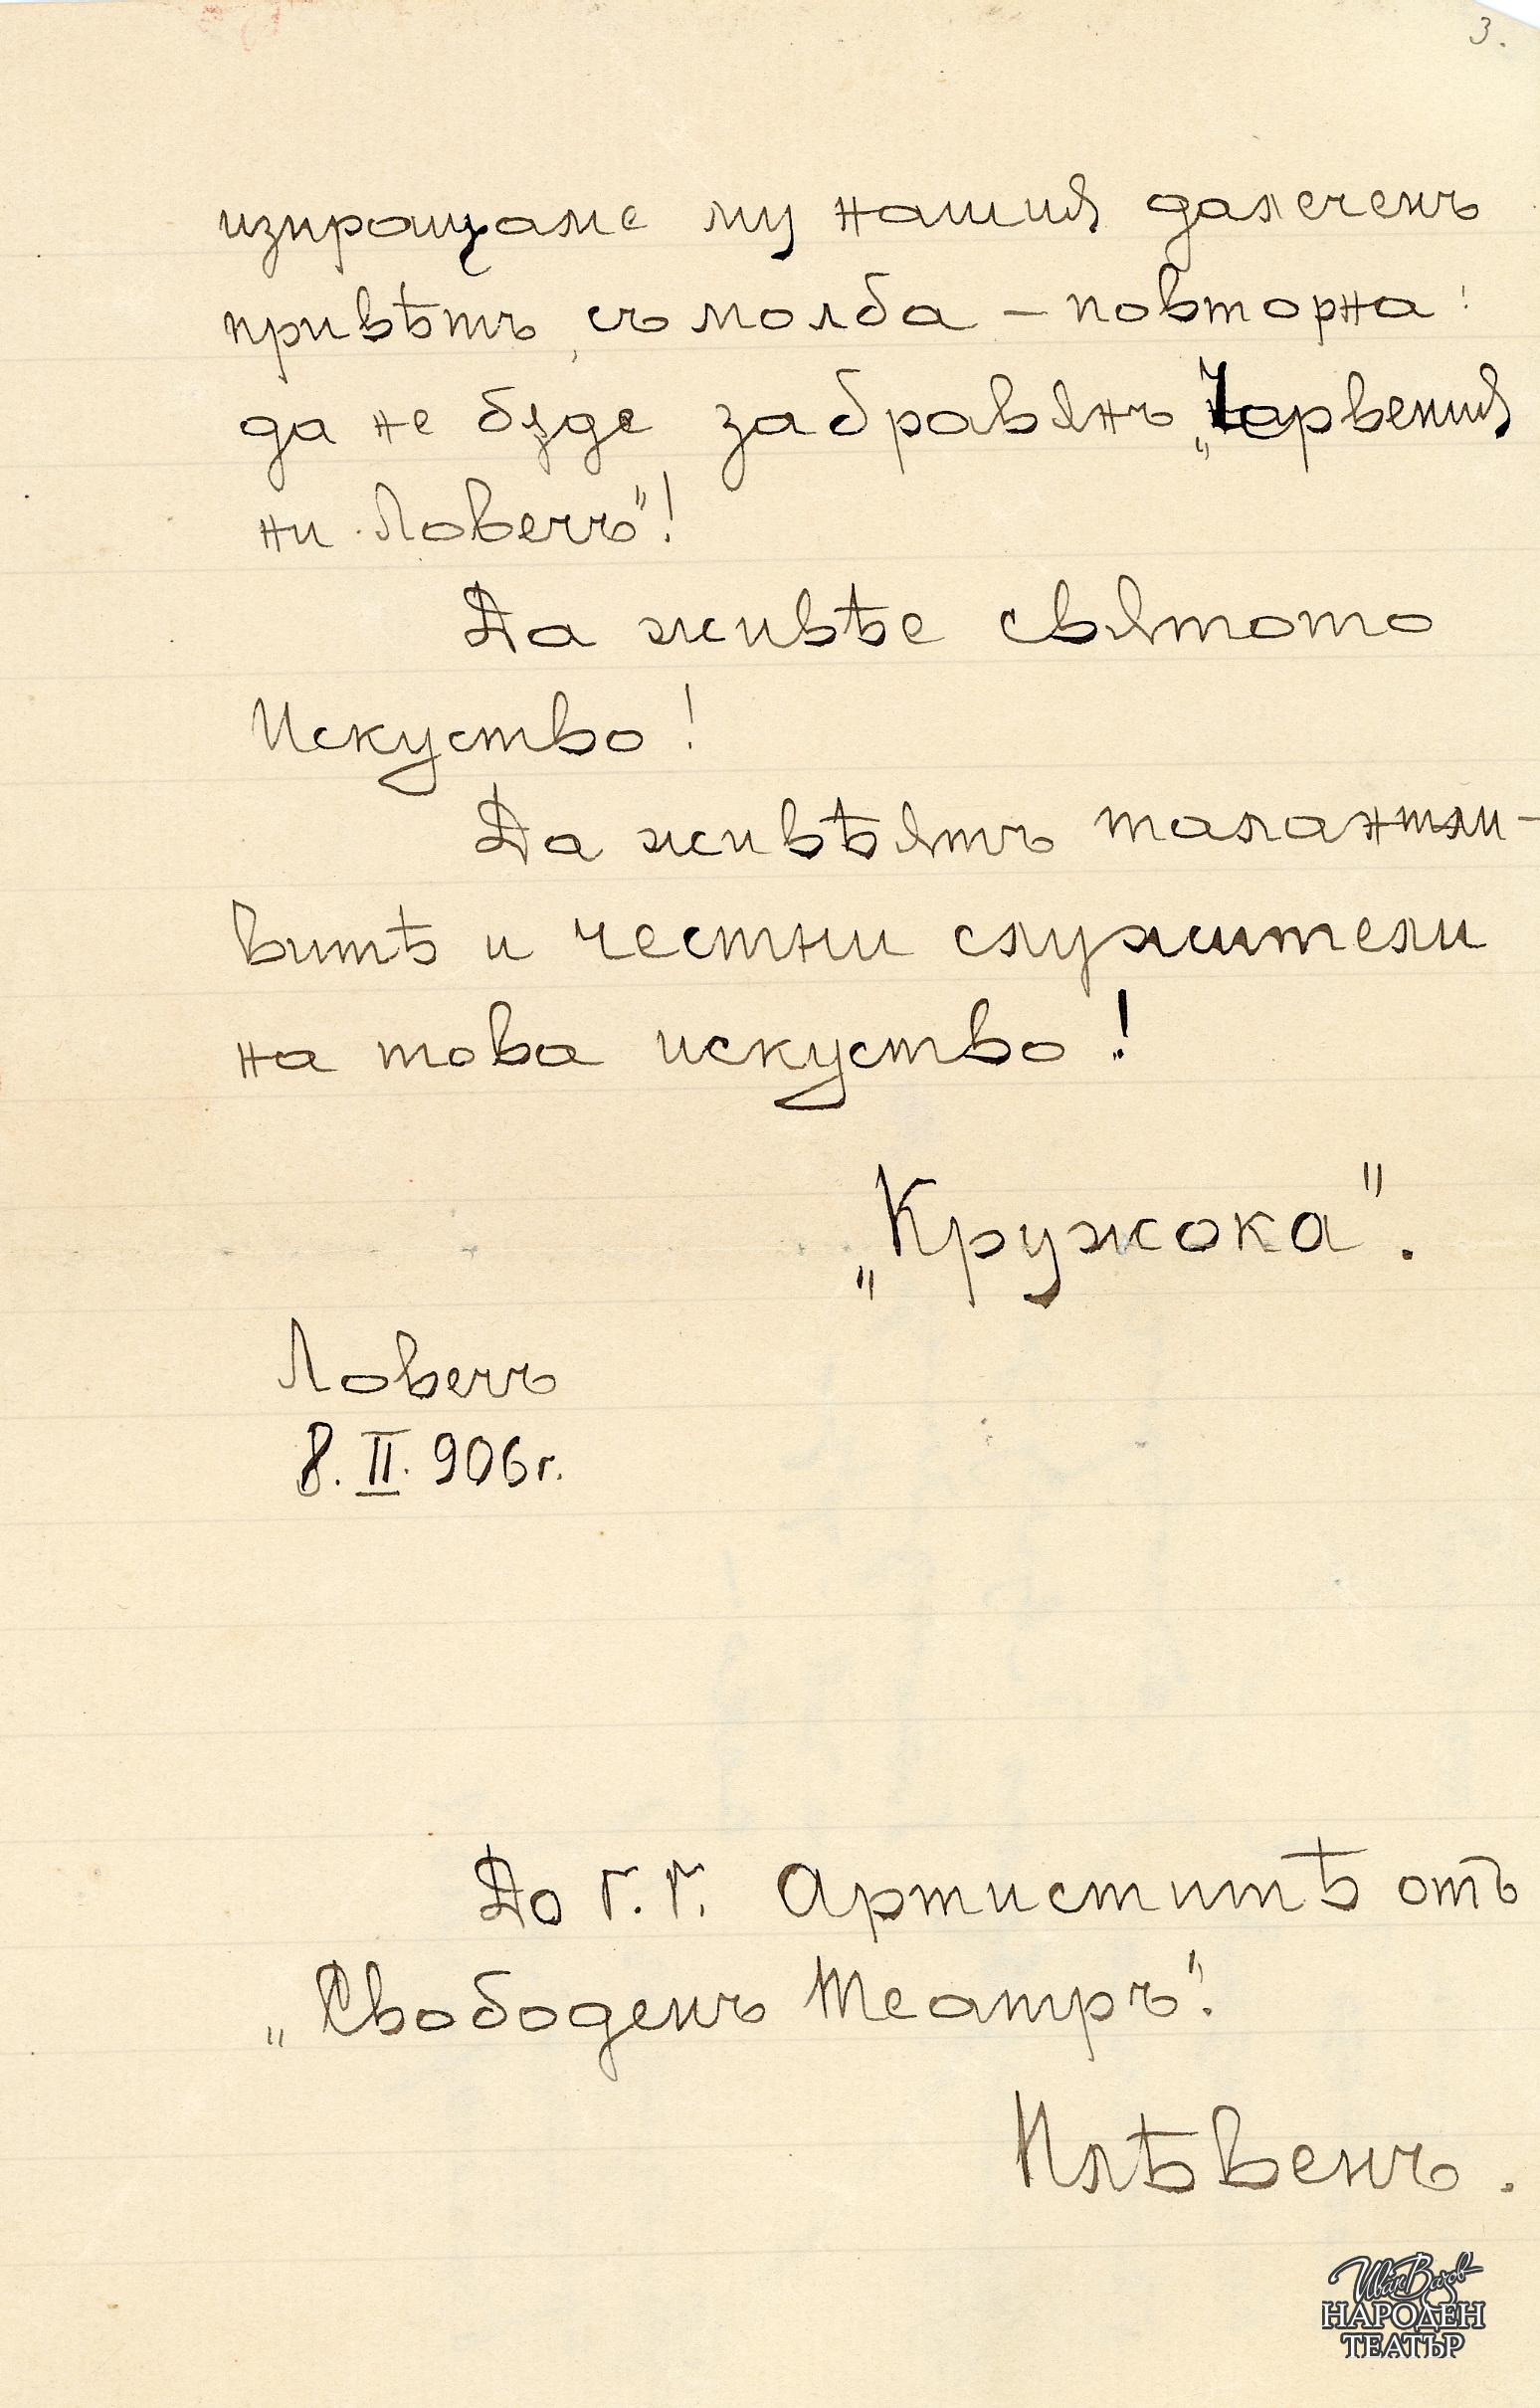 3.
изпращаме му нашия далеченъ
привѣтъ, съ молба — повторна:
да не бѫде забравянъ „Червения
ни Ловечъ"!
Да живѣе святото
Искуство!
Да живѣятъ талантли-
витѣ и честни служители
на това искуство!
„Кружока".
Ловечъ
8. II. 906 г.
До Г. Г. Артиститѣ отъ
„Свободенъ Театръ".
Плѣвенъ.
Иван Вазов
НАРОДЕН
ТЕАТЪР